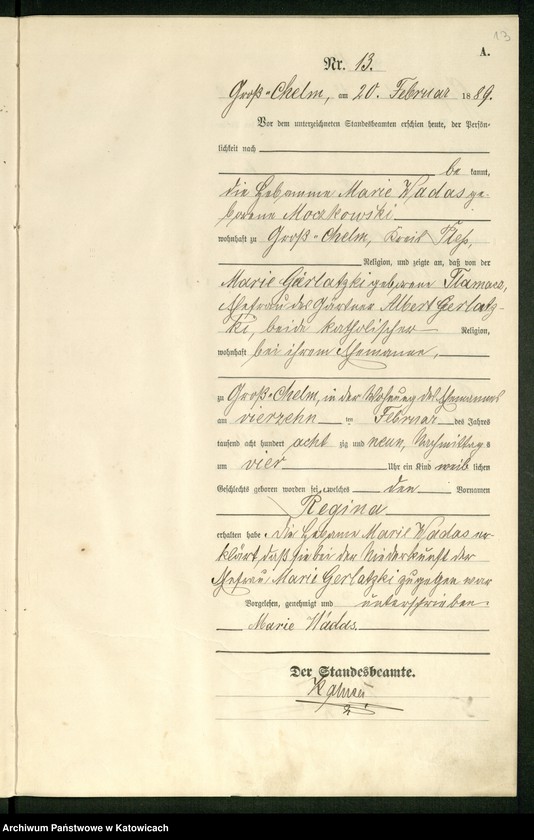 13
A.
Nr. 13.
Groß-Chelm, am 20. Februar 1889.
Vor dem unterzeichneten Standesbeamten erschien heute, der Persön-
lichkeit nach
be kannt,
die Hebamme Marie Wadas ge-
borene Moczkowski
wohnhaft zu Groß-Chelm, Kreis Pleß,
Religion, und zeigte an, daß von der
Marie Gerlatzki geborene
Ehefrau des Gärtner Albert Gerlatz-
ki, beide katholischer Religion,
wohnhaft bei ihrem Ehemanne,
zu Groß-Chelm, in der Wohnung des Ehemannes
am vierzehn ten Februar des Jahres
tausend acht hundert acht zig und neun, Nachmittag s
um vier Uhr ein Kind weib lichen
Geschlechts geboren worden sei, welches den Vornamen
Regina
erhalten habe. Die Hebame Marie Wadas er-
klärt daß sie bei der Niederkunft der
Ehefrau Marie Gerlatzki zugegen war
Vorgelesen, genehmigt und unterschrieben.
Marie Wadas.
Der Standesbeamte.
Archiwum Państwowe w Katowicach